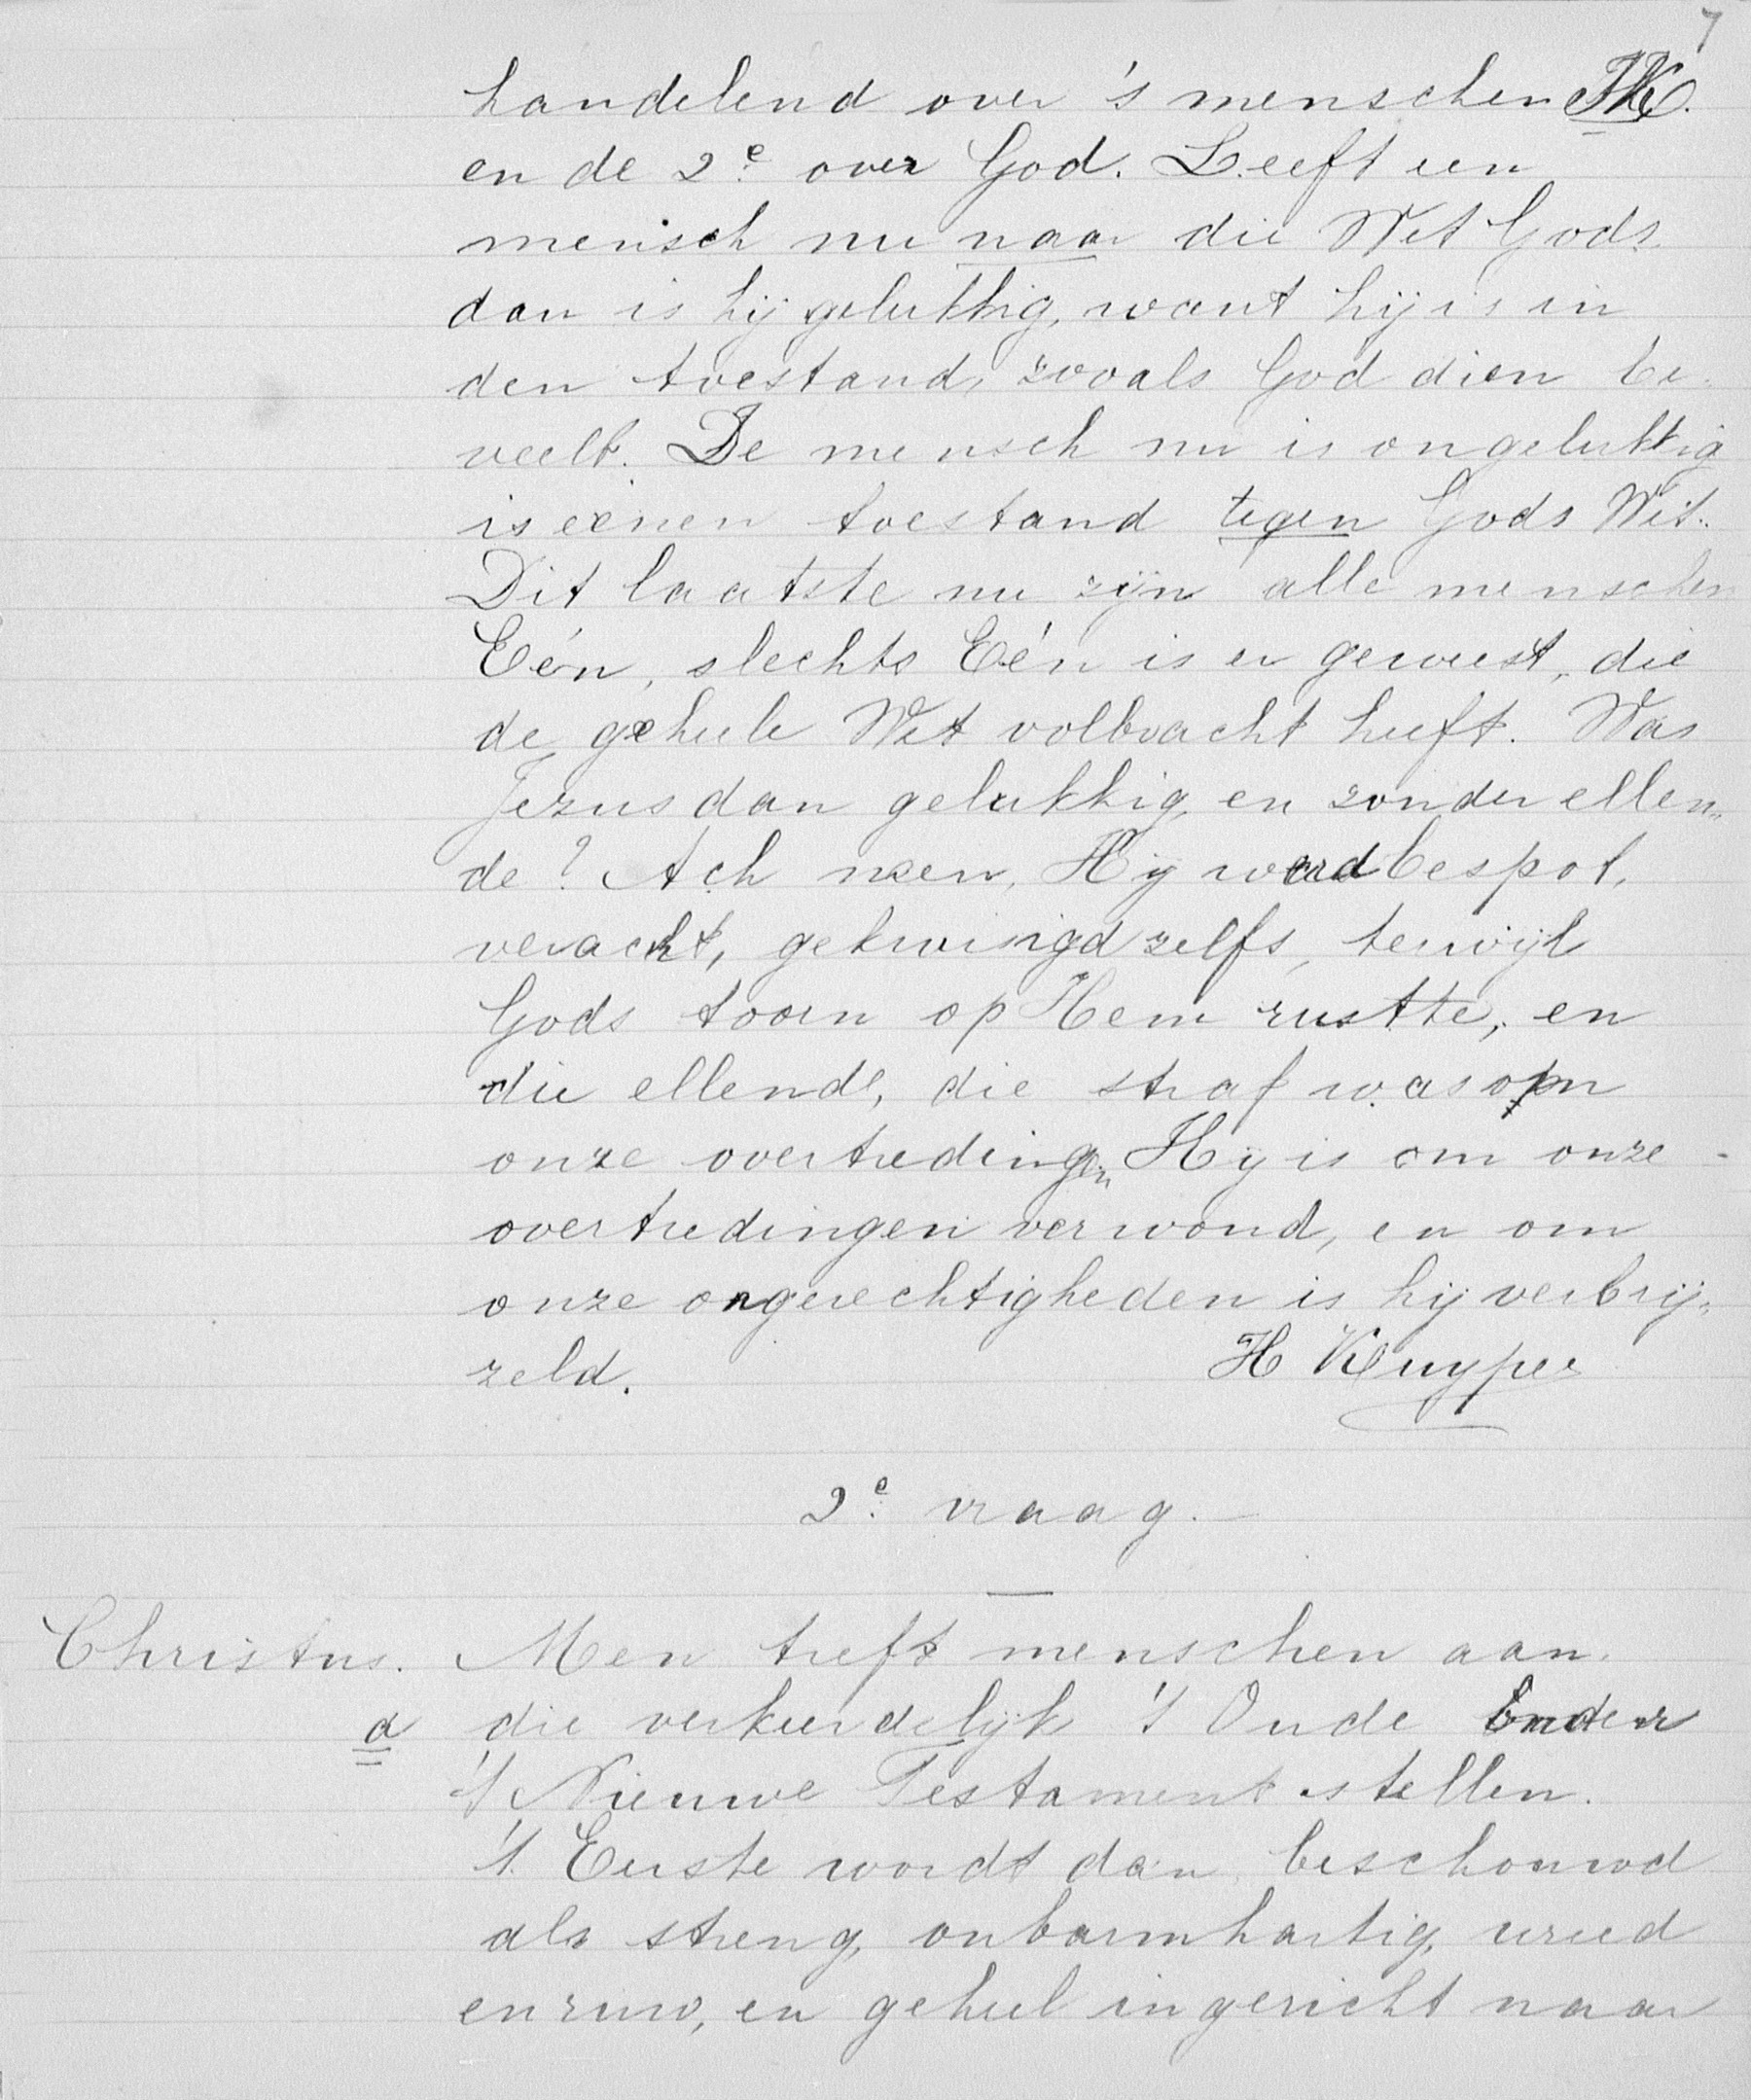 7
handelend over 's menschen HK.
en de 2e over God. Leeft een
mensch nu naar die Wet Gods
dan is hij gelukkig, want hij is in
den toestand, zooals God dien be-
veelt. De mensch nu is ongelukkig
is eenen toestand tegen Gods Wet.
Dit laatste nu zijn alle menschen
Eén, slechts Eén is er geweest, die
de geheele Wet volbracht heeft. Was
Jezus dan gelukkig, en zonder ellen„
de? Ach neen, Hij werd bespot,
veracht, gekruisigd zelfs, terwijl
Gods toorn op Hem rustte, en
die ellende, die straf was om
onze overtredingen Hij is om onze
overtredingen verwond, en om
onze ongerechtigheden is hij verbrij„
zeld. H Kuyper
2e vraag.
Christus. Men treft menschen aan.
a die verkeerdelijk 't Oude onder
't Nieuwe Testament stellen.
't Eerste wordt dan beschouwd
als streng, onbarmhartig, wreed
en ruw, en geheel ingericht naar